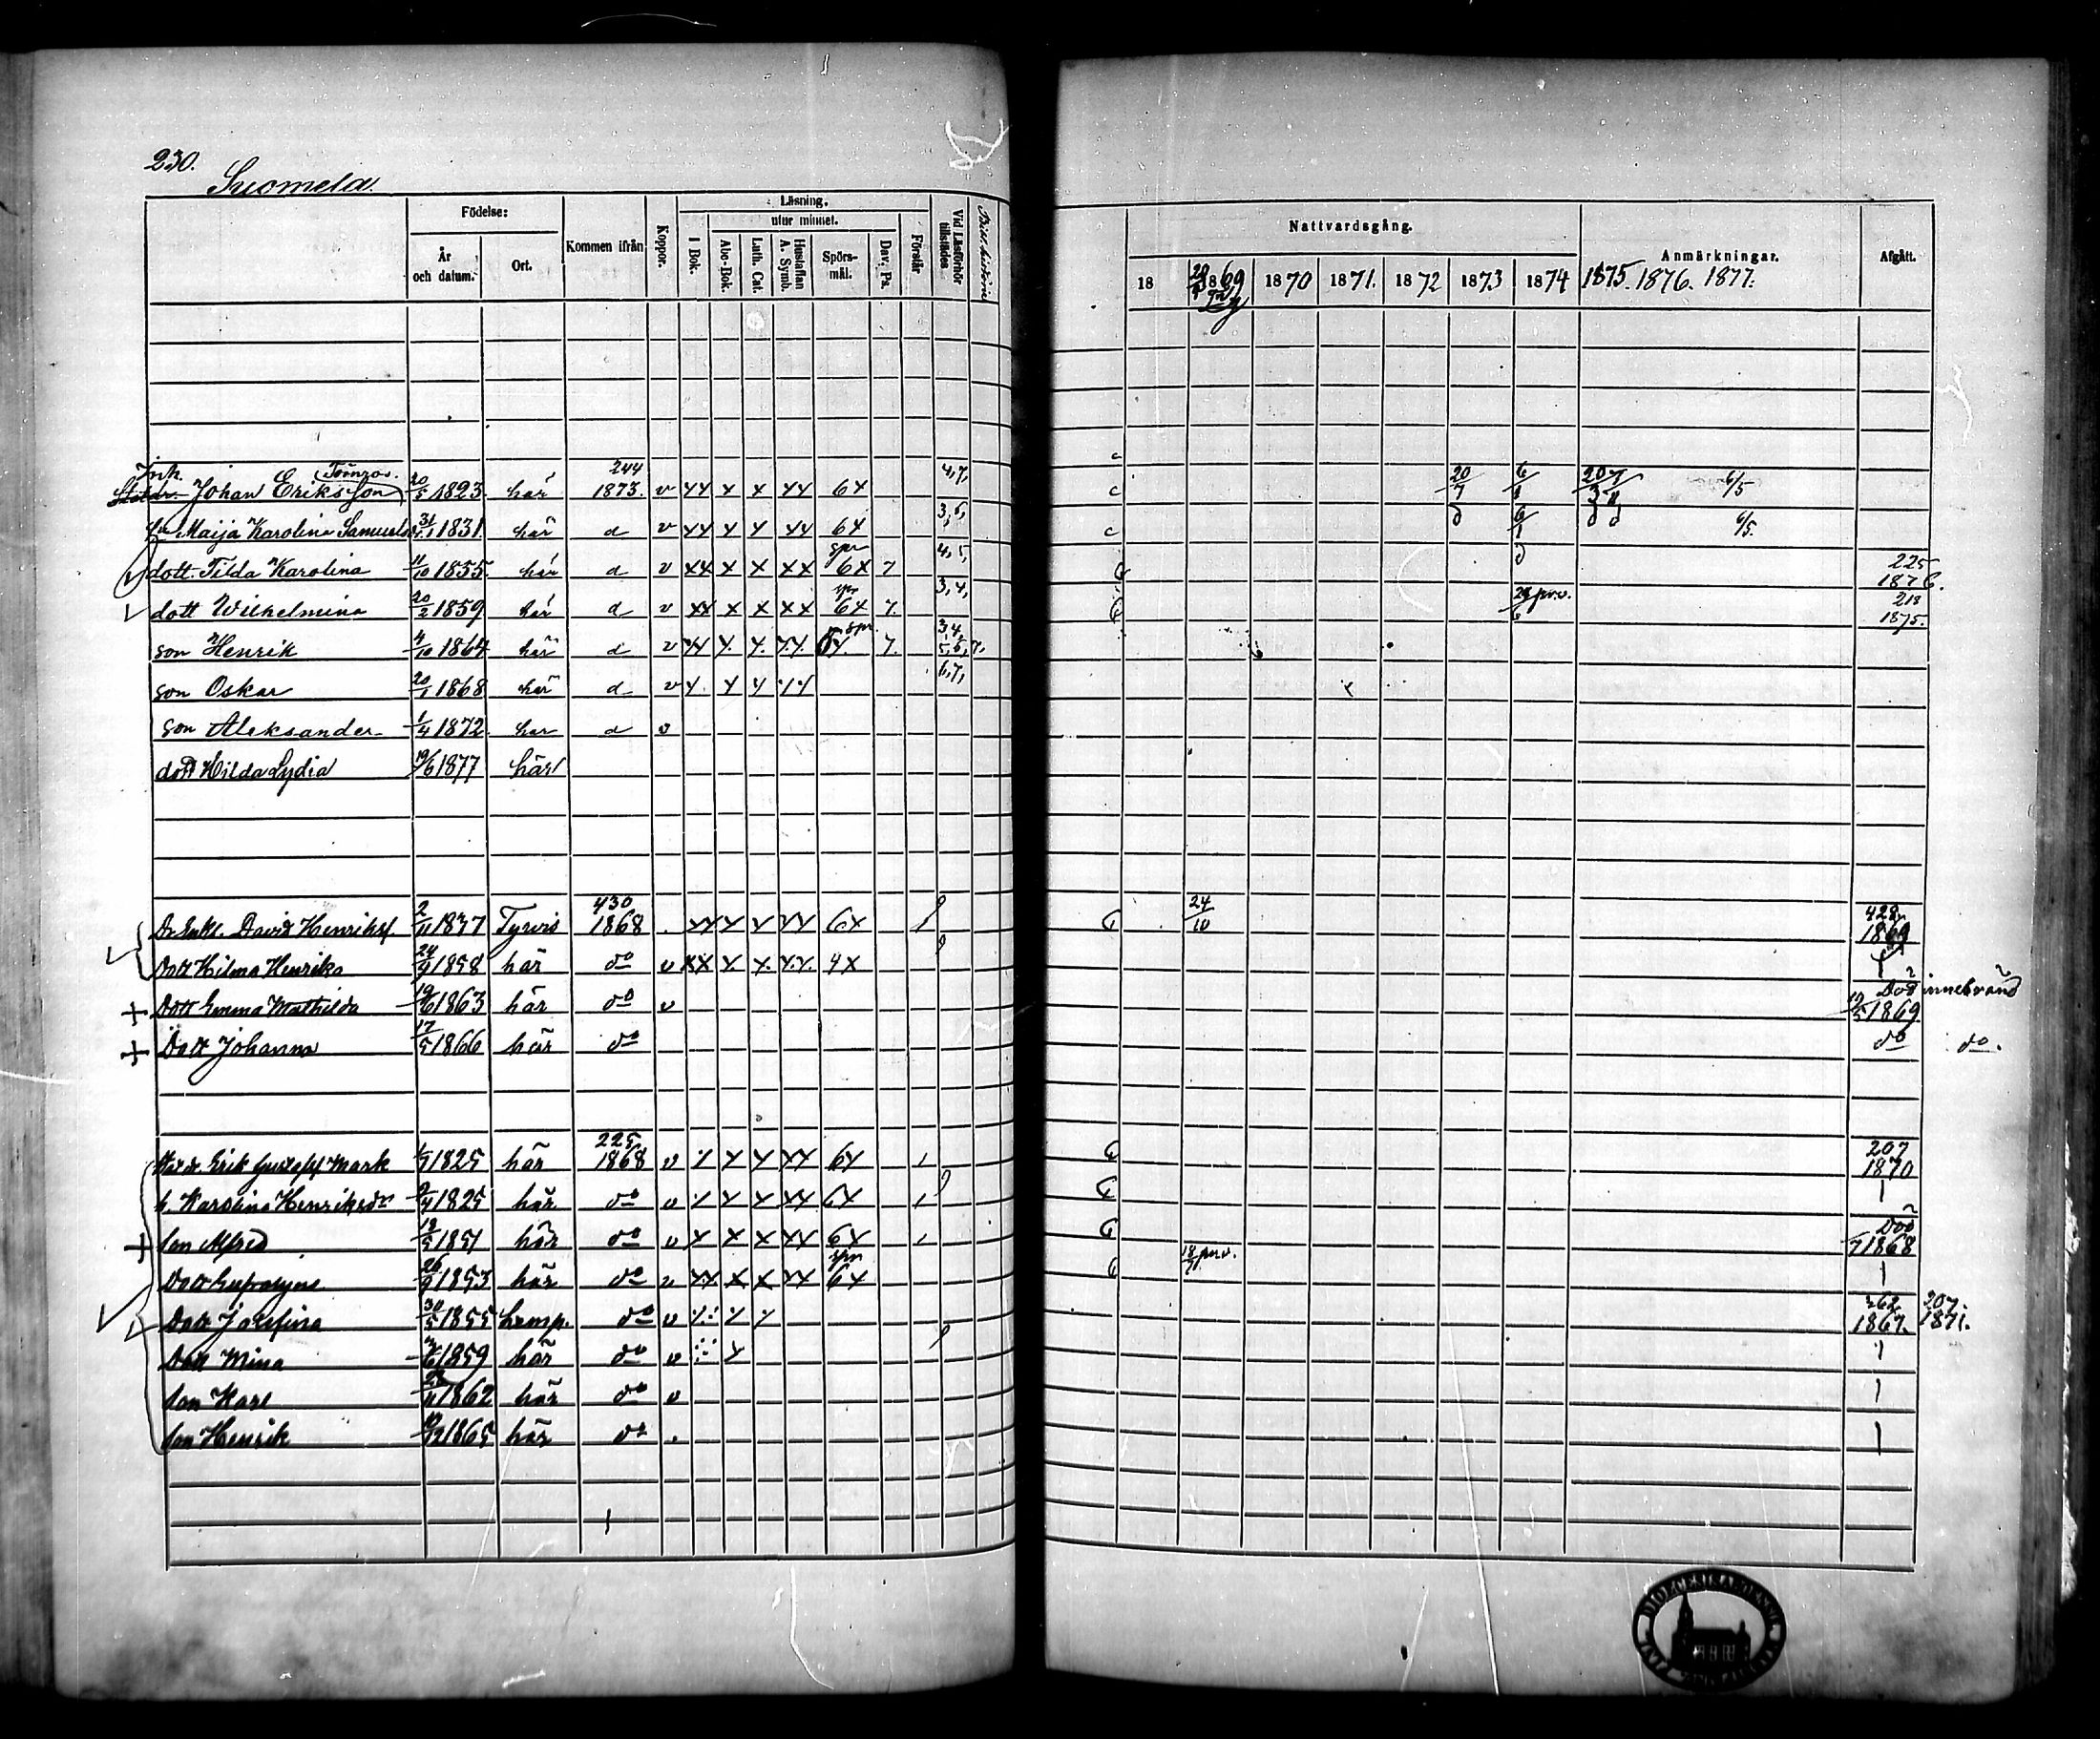 230.
Suomela.
Födelse:
År och datum.
Ort.
Kommen ifrån
Koppor.
Läsning.
I Bok.
utur minnet.
Abc-Bok.
Luth. Cat.
Hustaflan A. Symb.
Spörs-mål.
Dav. Ps.
Förstår
Vid Läsförhör tillstädes
Bibl. historia
Nattvardsgång.
18 1869 1870 1871. 1872 1873 1874 1875. 1876. 1877.
Anmärkningar.
Afgått.
Inh. Johan Eriksson 20/5 1823 här 244 1873. v xx x x xx 6x 4,7, 20/7 6/1 6/5
hu Maija Karolina Samuels 1831. här d v xx x x xx 6x 3,6, d 6/1 d d 6/5.
dott. Tilda Karolina 11/10 1855. här d v xx x x xx spr 6x 7 4,5, d 225 1876.
dott Wilhelmina 20/2 1859 här d v xx x x xx spr 6x 7. 3,4, prv. 218 1875.
son Henrik 4/10 1864 här d v xx x. x. x.x. spr 7. 3,4, 5,6,7,
son Oskar 20/1 1868 här d v x. x x 6,7,
son Aleksander 1/4 1872. här d v
dott Hilda Lydia 19/6 1877 här
David Henriksf 2/11 1837 Tyrvis 430 1868 xx x x xx 6x 24/10 428 1869
Dott Hilma Henrika 24/9 1858 här do v xx x. x. x.x. 4x
+ Dott Emma Mathilda 19/6 1863 här do v Död innebränd 1869
+ Dott Johanna 17/5 1866 här do do do.
Erik Gustafsf Mark 1825 här 225 1868 v x x xx 6x 207 1870
h. Karolina Henriksdr 1825 här do v x x xx 6x
+ Son Alfred 1851 här do v x x x xx 6x Död 1868
Dott Eufrosyne 26/9 1853 här do v xx x x xx spr 6x 18 prv.
Dott Josefina 30/5 1855 hemp. do v 362 1867. 207. 1871.
Dott Mina 1859 här do v
Son Karl 1862 här do v
Son Henrik 1865 här do